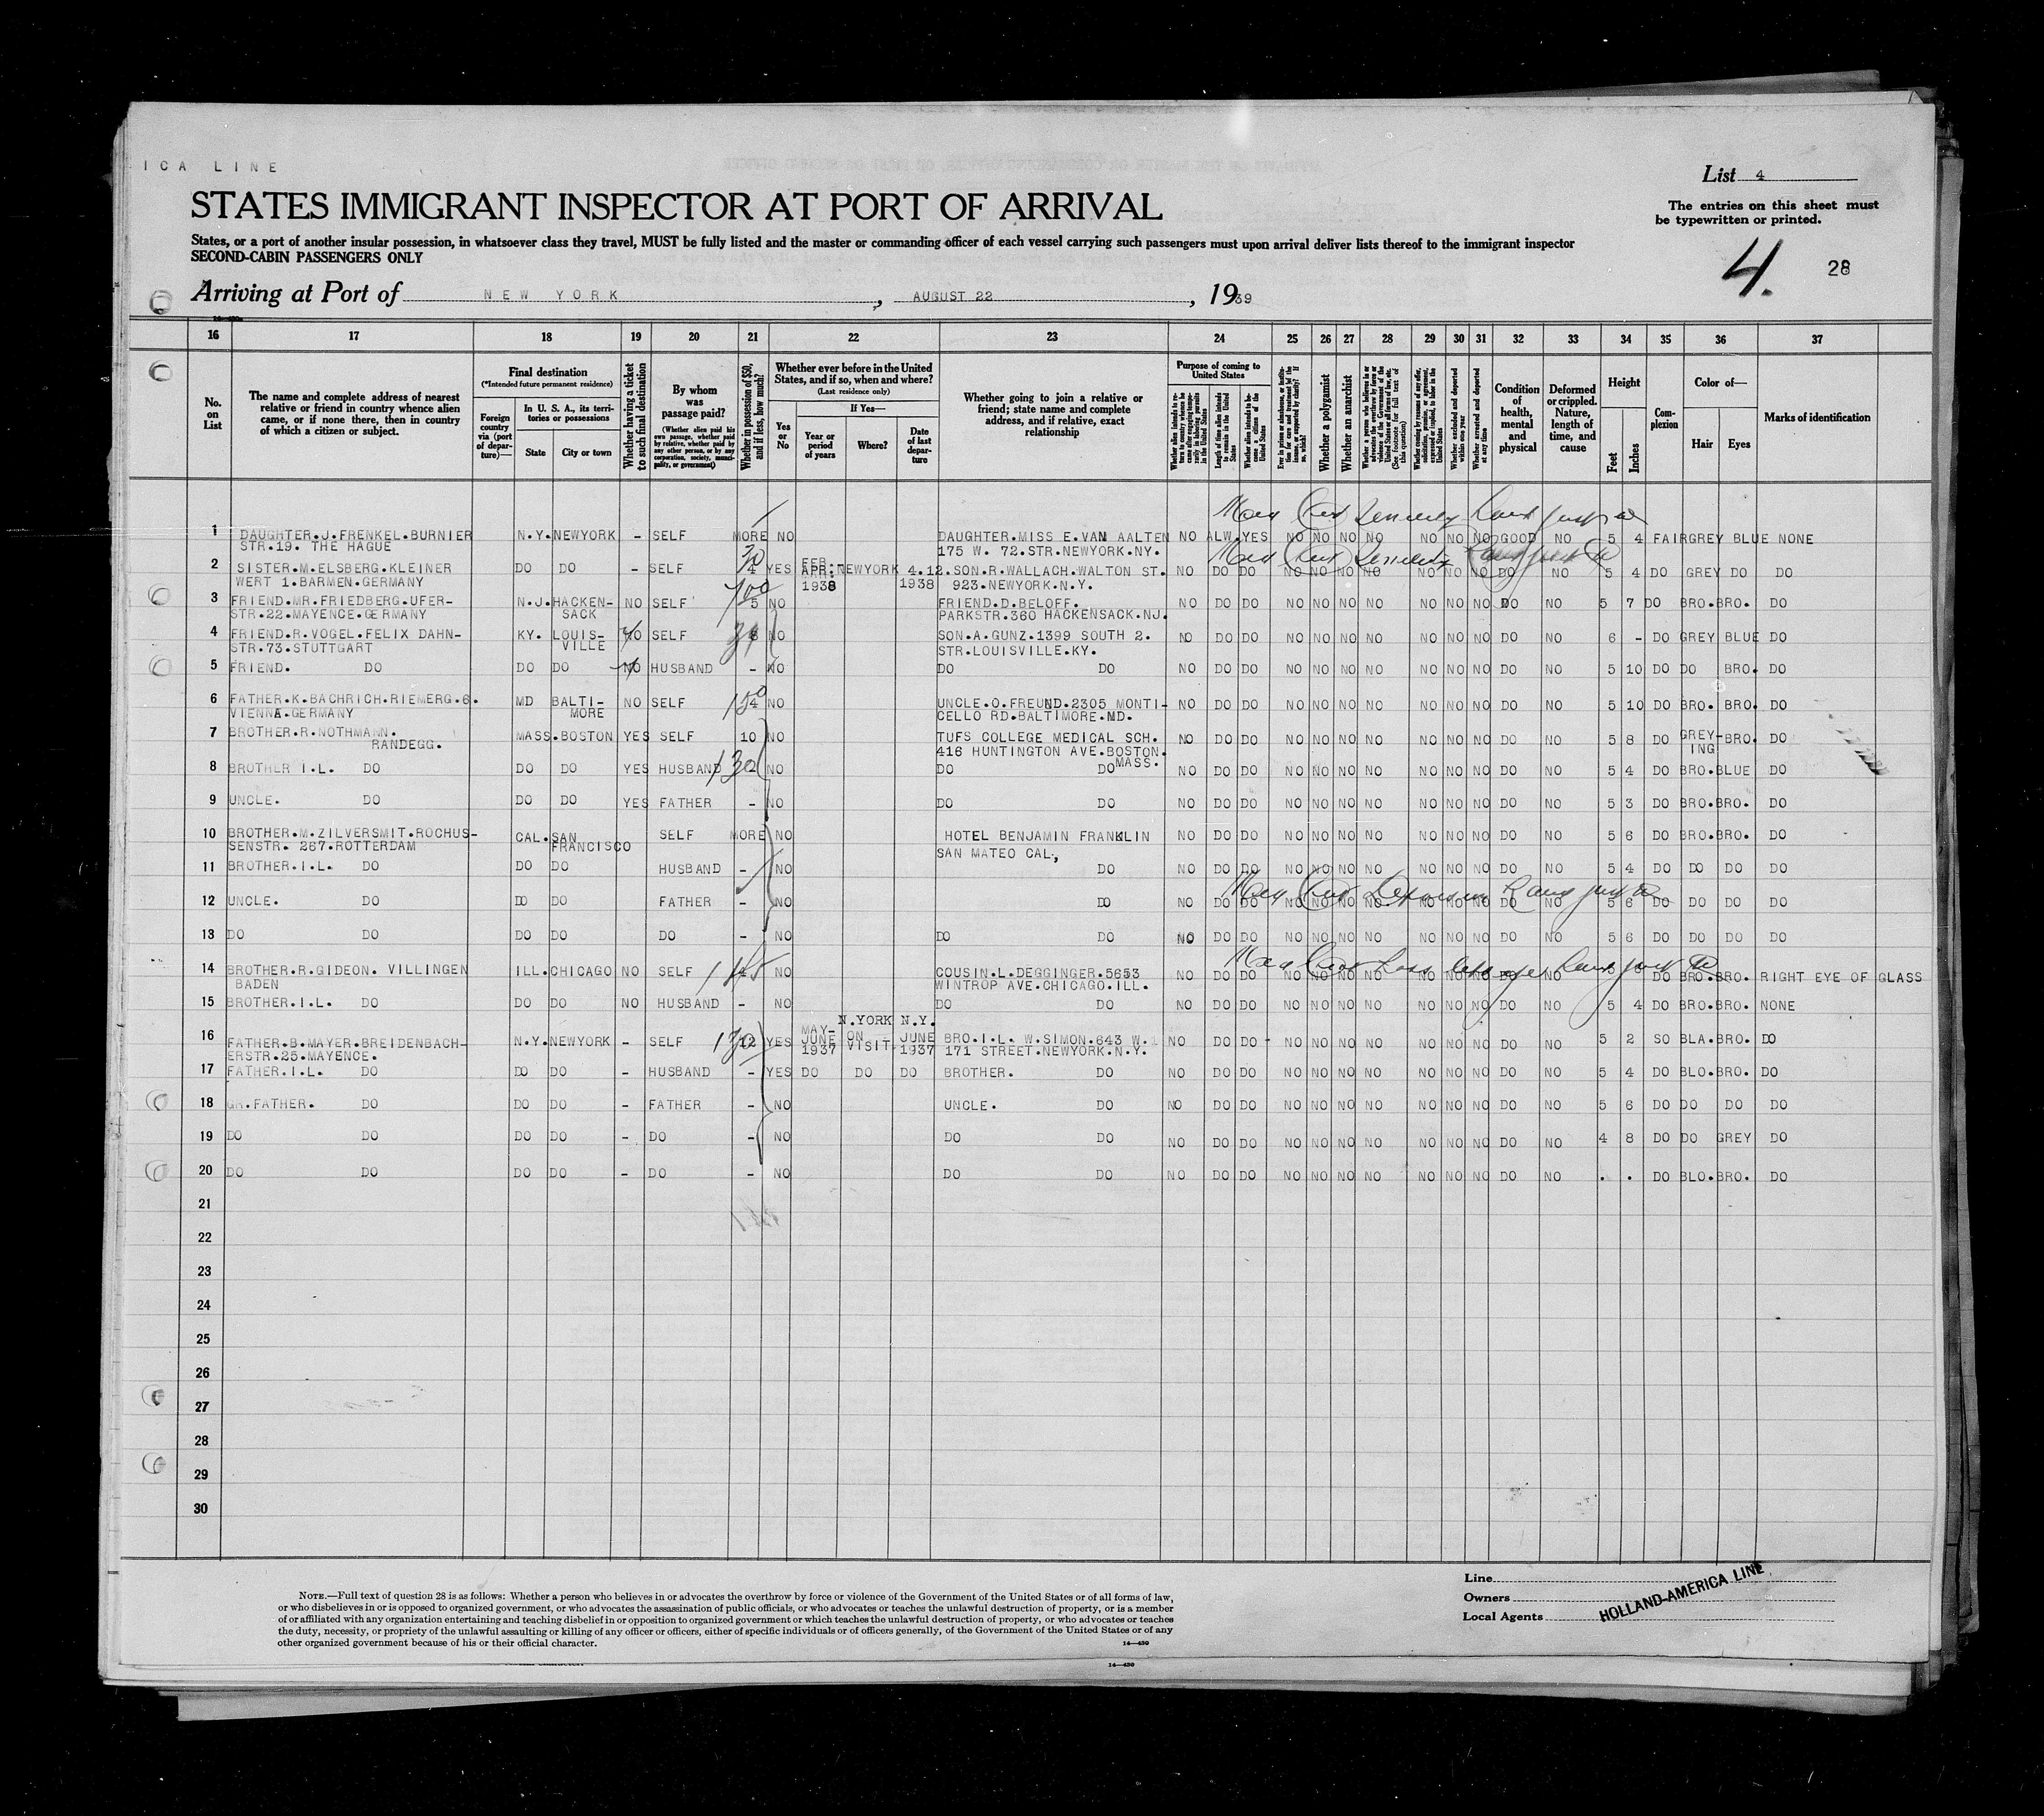 ICA LINE
List 4
STATES IMMIGRANT INSPECTOR AT PORT OF ARRIVAL
The entries on this sheet must
be typewritten or printed.
States, or a port of another insular possession, in whatsoever class they travel, MUST be fully listed and the master or commanding officer of each vessel carrying such passengers must upon arrival deliver lists thereof to the immigrant inspector
SECOND-CABIN PASSENGERS ONLY
4. 28
Arriving at Port of NEW YORK, AUGUST 22, 1939
16 17 18 19 20 21 22 23 24 25 26 27 28 29 30 31 32 33 34 35 36 37
No. on List
The name and complete address of nearest relative or friend in country whence alien came, or if none there, then in country of which a citizen or subject.
Final destination
(*Intended future permanent residence)
Foreign country via (port of departure)—
In U. S. A., its territories or possessions
State
City or town
Whether having a ticket to such final destination
By whom was passage paid?
(Whether alien paid his own passage, whether paid by relative, whether paid by any other person, or by any corporation, society, municipality, or government)
Whether in possession of $50, and if less, how much?
Whether ever before in the United States, and if so, when and where?
(Last residence only)
Yes or No
If Yes—
Year or period of years
Where?
Date of last departure
Whether going to join a relative or friend; state name and complete address, and if relative, exact relationship
Purpose of coming to United States
Whether alien intends to return to country whence he came after engaging temporarily in laboring pursuits in the United States
Length of time alien intends to remain in the United States
Whether alien intends to become a citizen of the United States
Ever in prison or almshouse, or institution for care and treatment of the insane, or supported by charity? If so, which?
Whether a polygamist
Whether an anarchist
Whether a person who believes in or advocates the overthrow by force or violence of the Government of the United States or all forms of law, etc. (See footnote for full text of this question)
Whether coming by reason of any offer, solicitation, promise, or agreement, expressed or implied, to labor in the United States
Whether excluded and deported within one year
Whether arrested and deported at any time
Condition of health, mental and physical
Deformed or crippled. Nature, length of time, and cause
Height
Feet
Inches
Complexion
Color of—
Hair
Eyes
Marks of identification
1 DAUGHTER.J.FRENKEL.BURNIER N.Y. NEWYORK - SELF MORE NO DAUGHTER.MISS E.VAN AALTEN NO ALW. YES NO NO NO NO NO NO NO GOOD NO 5 4 FAIR GREY BLUE NONE
STR.19. THE HAGUE 175 W. 72.STR.NEWYORK.NY.
2 SISTER.M.ELSBERG.KLEINER DO DO - SELF 4 YES FEB. APR. 1938 NEWYORK 4.12. 1938 SON.R.WALLACH.WALTON ST. NO DO DO NO NO NO NO NO NO NO DO NO 5 4 DO GREY DO DO
WERT 1.BARMEN.GERMANY 923.NEWYORK.N.Y.
3 FRIEND.MR.FRIEDBERG.UFER- N.J. HACKEN- NO SELF 100 5 NO FRIEND.D.BELOFF. NO DO DO NO NO NO NO NO NO NO DO NO 5 7 DO BRO. BRO. DO
STR.22.MAYENCE.GERMANY SACK PARKSTR.360 HACKENSACK.NJ.
4 FRIEND.R.VOGEL.FELIX DAHN- KY. LOUIS- NO SELF NO SON.A.GUNZ.1399 SOUTH 2. NO DO DO NO NO NO NO NO NO NO DO NO 6 - DO GREY BLUE DO
STR.73.STUTTGART VILLE STR.LOUISVILLE.KY.
5 FRIEND. DO DO DO NO HUSBAND - NO DO DO NO DO DO NO NO NO NO NO NO NO DO NO 5 10 DO DO BRO. DO
6 FATHER.K.BACHRICH.RIEMERG.6. MD BALTI- NO SELF 150 4 NO UNCLE.O.FREUND.2305 MONTI- NO DO DO NO NO NO NO NO NO NO DO NO 5 10 DO BRO. BRO. DO
VIENNA.GERMANY MORE CELLO RD.BALTIMORE.MD.
7 BROTHER.R.NOTHMANN. MASS. BOSTON YES SELF 10 NO TUFS COLLEGE MEDICAL SCH. NO DO DO NO NO NO NO NO NO NO DO NO 5 8 DO GREY- BRO. DO
RANDEGG. 416 HUNTINGTON AVE.BOSTON. ING
8 BROTHER I.L. DO DO DO YES HUSBAND 130 - NO DO DO MASS. NO DO DO NO NO NO NO NO NO NO DO NO 5 4 DO BRO. BLUE DO
9 UNCLE. DO DO DO YES FATHER - NO DO DO NO DO DO NO NO NO NO NO NO NO DO NO 5 3 DO BRO. BRO. DO
10 BROTHER.M.ZILVERSMIT.ROCHUS- CAL. SAN SELF MORE NO HOTEL BENJAMIN FRANKLIN NO DO DO NO NO NO NO NO NO NO DO NO 5 6 DO BRO. BRO. DO
SENSTR. 267.ROTTERDAM FRANCISCO SAN MATEO CAL.,
11 BROTHER.I.L. DO DO DO HUSBAND - NO DO NO DO DO NO NO NO NO NO NO NO DO NO 5 4 DO DO DO DO
12 UNCLE. DO DO DO FATHER - NO DO NO DO DO NO NO NO NO NO NO NO DO NO 5 6 DO DO DO DO
13 DO DO DO DO DO - NO DO DO NO DO DO NO NO NO NO NO NO NO DO NO 5 6 DO DO DO DO
14 BROTHER.R.GIDEON. VILLINGEN ILL. CHICAGO NO SELF NO COUSIN.L.DEGGINGER.5653 NO DO DO NO NO NO NO NO NO NO DO NO DO BRO. BRO. RIGHT EYE OF GLASS
BADEN WINTROP AVE.CHICAGO.ILL.
15 BROTHER.I.L. DO DO DO NO HUSBAND - NO DO DO NO DO DO NO NO NO NO NO NO NO DO NO 5 4 DO BRO. BRO. NONE
16 FATHER.B.MAYER.BREIDENBACH- N.Y. NEWYORK - SELF 130 12 YES MAY- JUNE 1937 N.YORK ON VISIT N.Y. JUNE 1937 BRO.I.L. W.SIMON.643 W. NO DO DO NO NO NO NO NO NO NO DO NO 5 2 SO BLA. BRO. DO
ERSTR.25.MAYENCE. 171 STREET.NEWYORK.N.Y.
17 FATHER.I.L. DO DO DO - HUSBAND - YES DO DO DO BROTHER. DO NO DO DO NO NO NO NO NO NO NO DO NO 5 4 DO BLO. BRO. DO
18 GR.FATHER. DO DO DO - FATHER - NO UNCLE. DO NO DO DO NO NO NO NO NO NO NO DO NO 5 6 DO DO DO DO
19 DO DO DO DO - DO - NO DO DO NO DO DO NO NO NO NO NO NO NO DO NO 4 8 DO DO GREY DO
20 DO DO DO DO - DO - NO DO DO NO DO DO NO NO NO NO NO NO NO DO NO . . DO BLO. BRO. DO
21
22
23
24
25
26
27
28
29
30
NOTE.—Full text of question 28 is as follows: Whether a person who believes in or advocates the overthrow by force or violence of the Government of the United States or of all forms of law,
or who disbelieves in or is opposed to organized government, or who advocates the assassination of public officials, or who advocates or teaches the unlawful destruction of property, or is a member
of or affiliated with any organization entertaining and teaching disbelief in or opposition to organized government or which teaches the unlawful destruction of property, or who advocates or teaches
the duty, necessity, or propriety of the unlawful assaulting or killing of any officer or officers, either of specific individuals or of officers generally, of the Government of the United States or of any
other organized government because of his or their official character.
14—430
Line
Owners
Local Agents
HOLLAND-AMERICA LINE
14—430